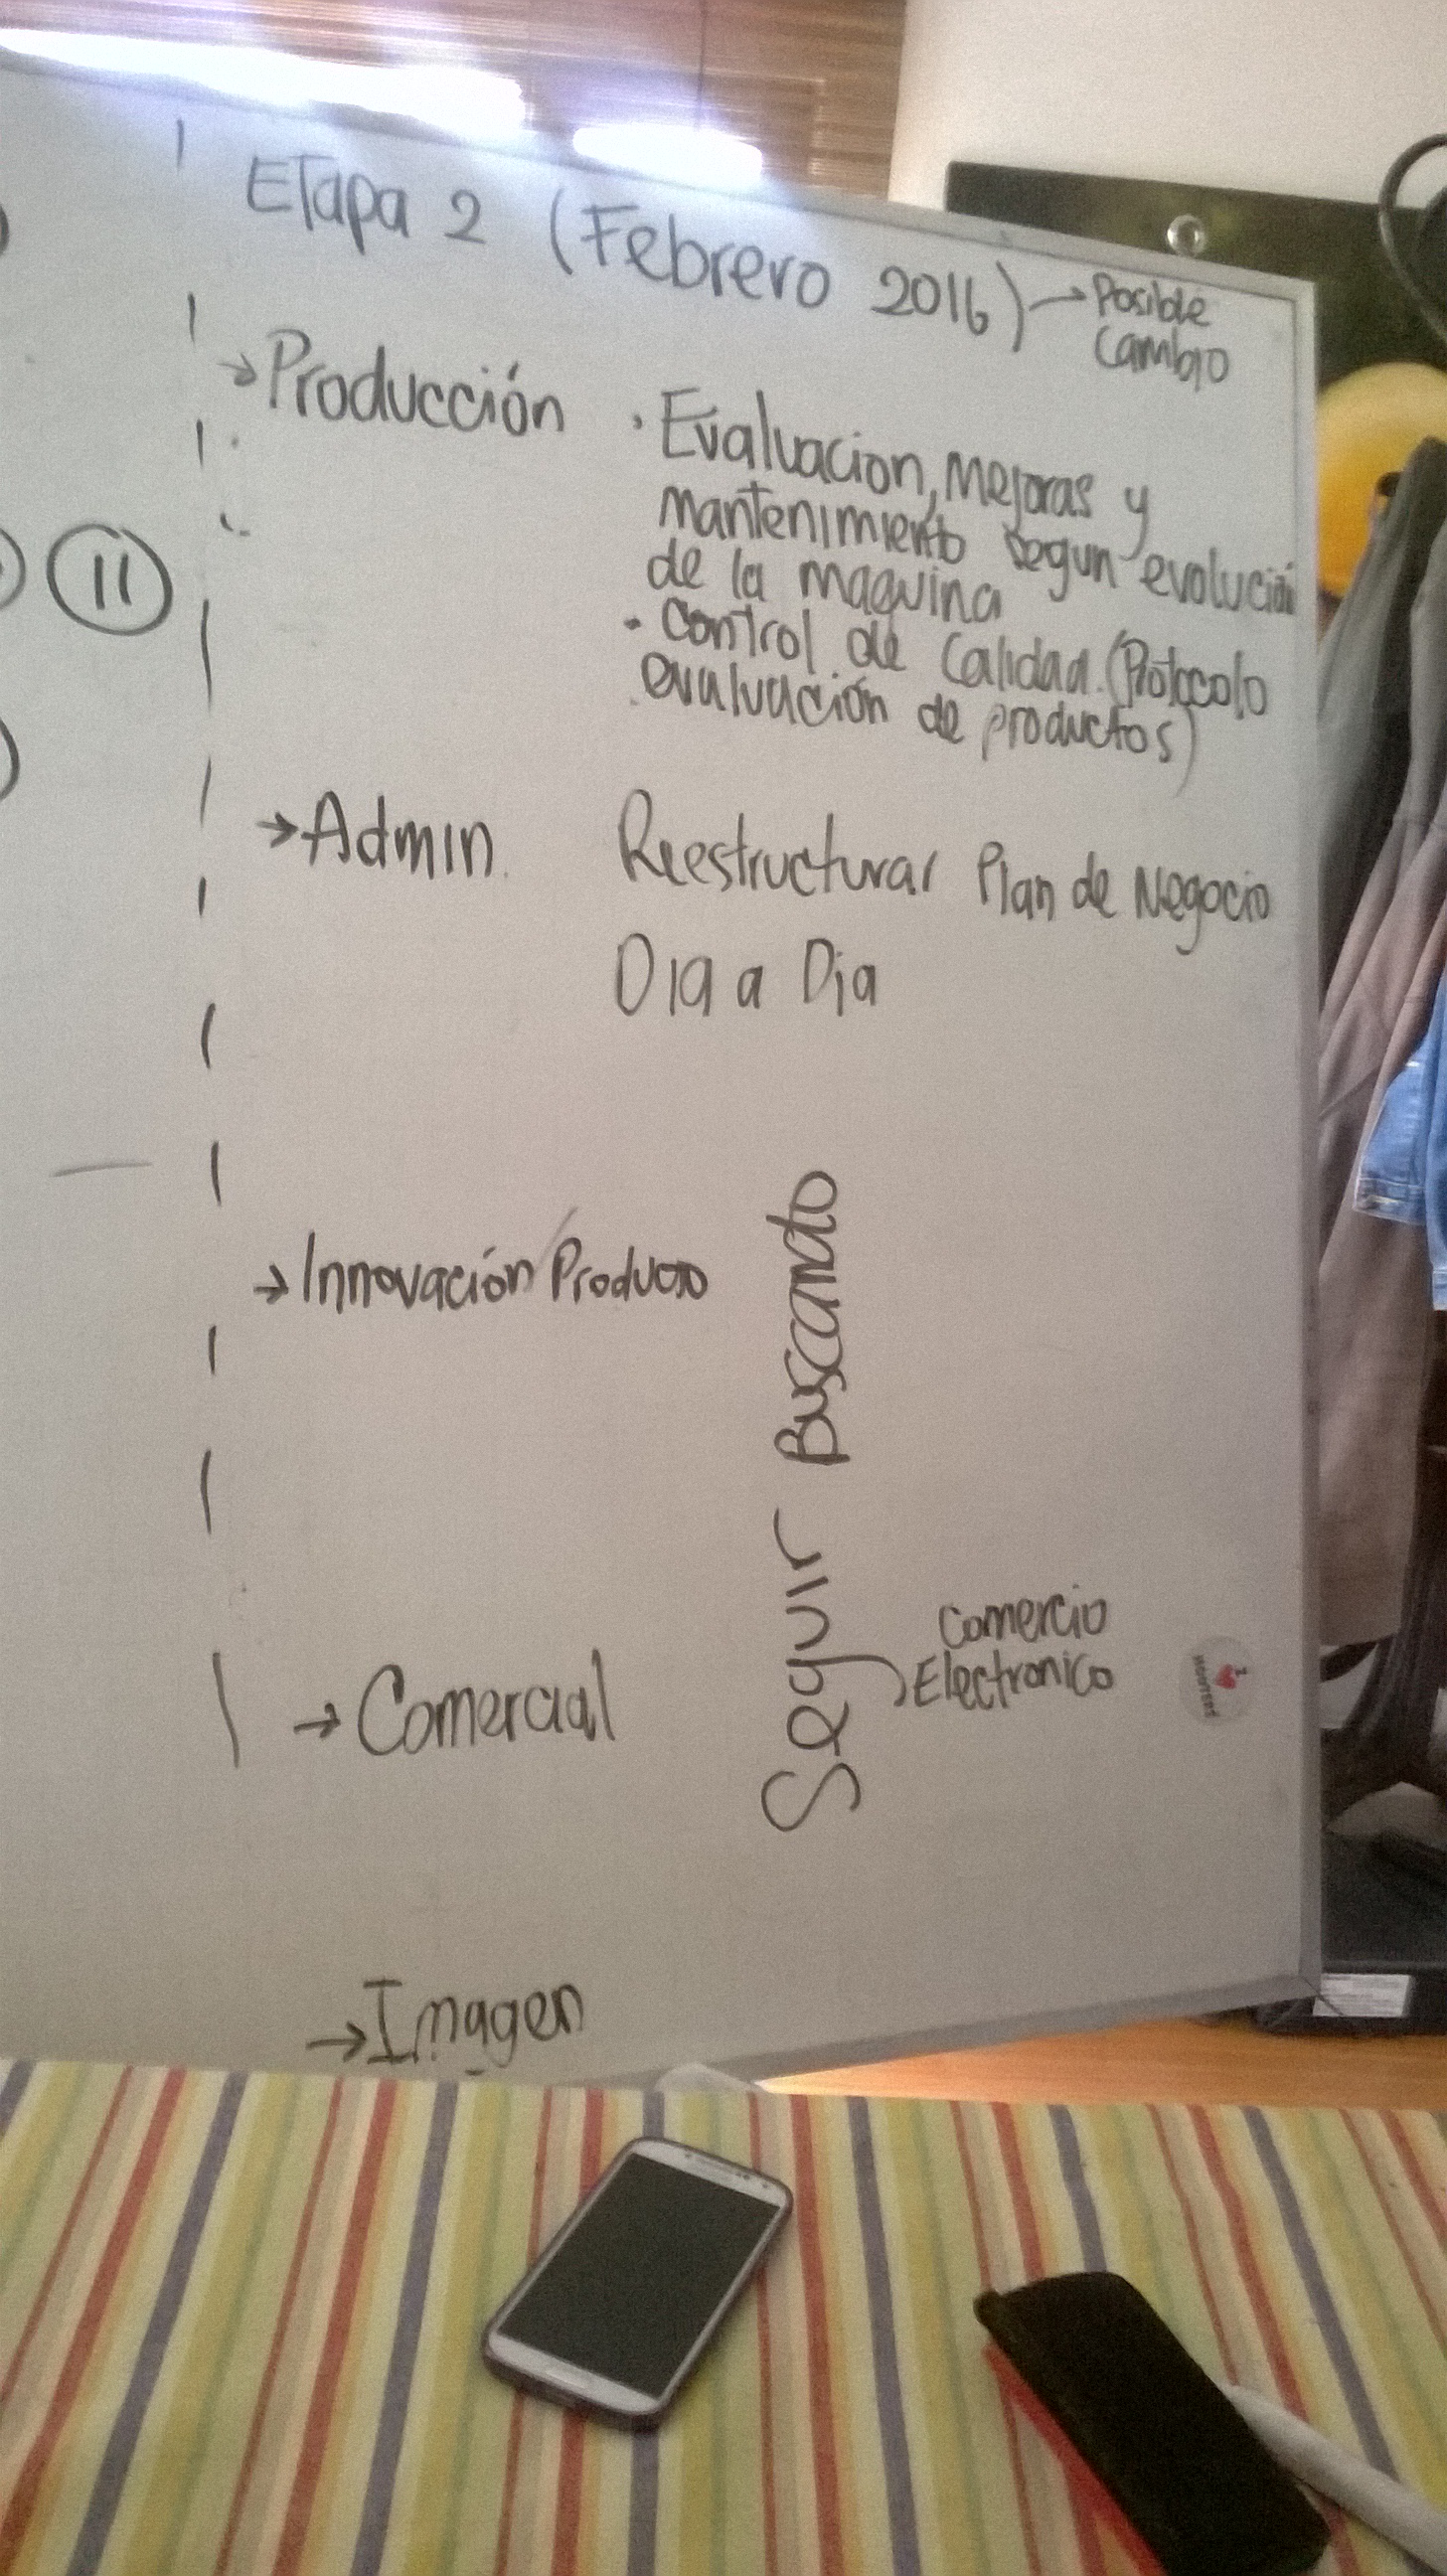 Etapa 2 (Febrero 2016) → Posible
Cambio
→ Producción
· Evaluacion, Mejoras y
mantenimiento segun evolución
de la maquina
· Control de Calidad. (Protocolo
evaluación de productos)
11
→ Admin.
Reestructurar Plan de Negocio
Dia a Dia
→ Innovación/Producto
Seguir Buscando
Comercio
Electronico
→ Comercial
→ Imagen